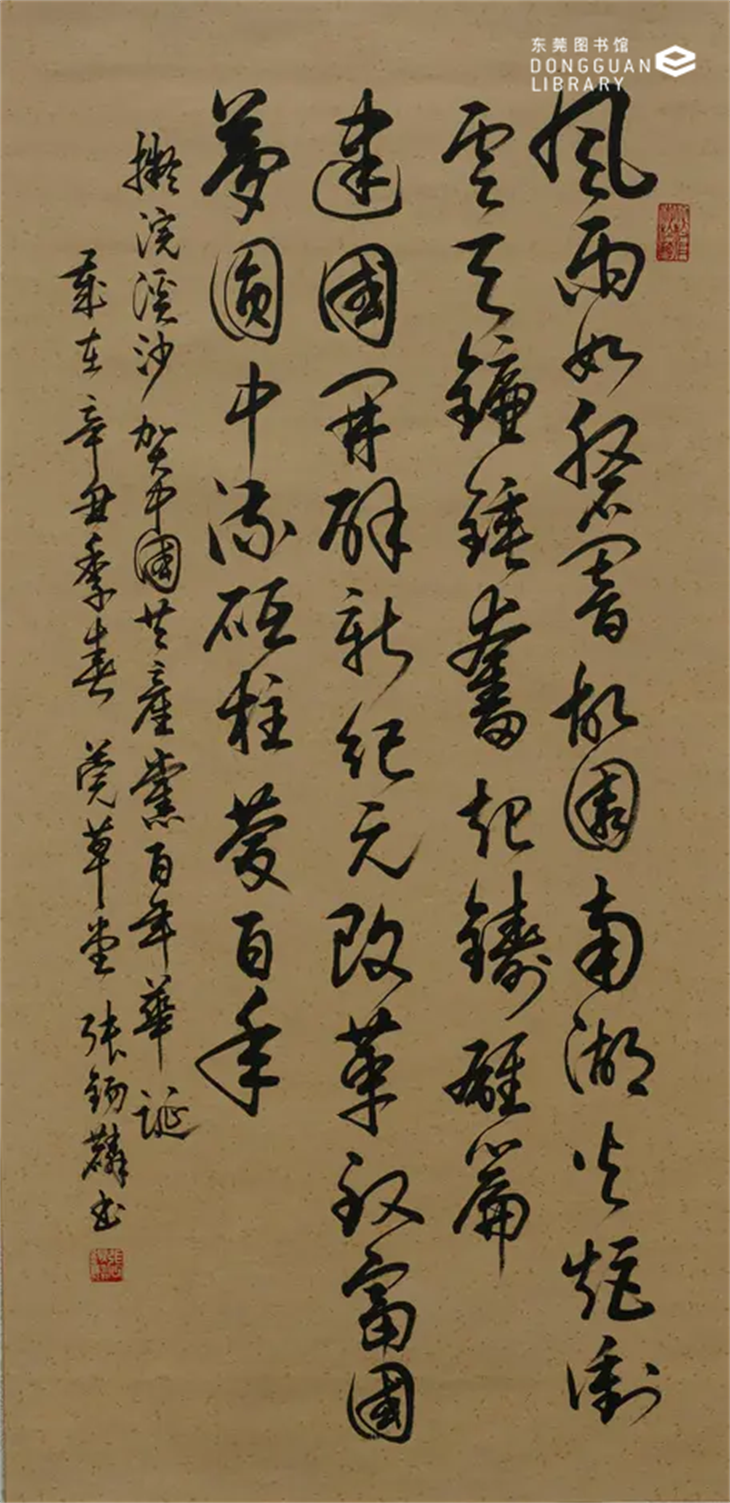 东莞图书馆
DONGGUAN
LIBRARY
風雨如磐闇故園南湖火炬衝
雲天鐮錘奮起鑄雄篇
建國開辟新紀元改革致富國
夢圓中流砥柱慶百年
擬浣溪沙賀中國共產黨百年華誕
歲在辛丑季春 莞草堂 張錫麟書